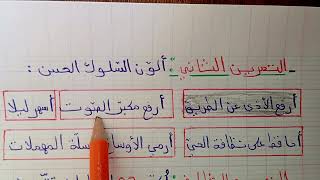 التمرين الثاني: ألوّن السّلوك الحسن:
أرفع الأذى عن الطريق أرفع مكبّر الصّوت أسهر ليلا
أحافظ على نظافة الحيّ أرمي الأوساخ سلّة المهملات